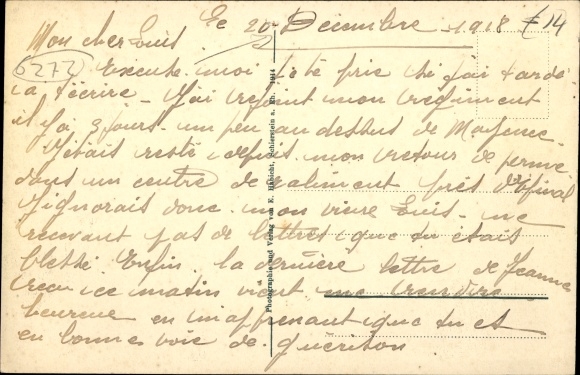 Le 20 Décembre 1918 £14
Mon cher Louis
6272 Excuse moi s'il te prie si j'ai tardé
à t'écrire - J'ai rejoint mon regiment
il y a 3 jours - un peu au dessus de Mayence -
J'étais resté depuis mon retour de perme
dans un centre de ralliment près d'Epinal
J'ignorais donc mon vieux Louis - ne
recevant pas de lettres que tu étais
blessé. Enfin la dernière lettre de Jeanne
recu ce matin vient me rendre
heureux en m'apprenant que tu es
en bonnes voie de guérison
Photographie und Verlag von K. Habicht, Schierstein a. Rh. 1914